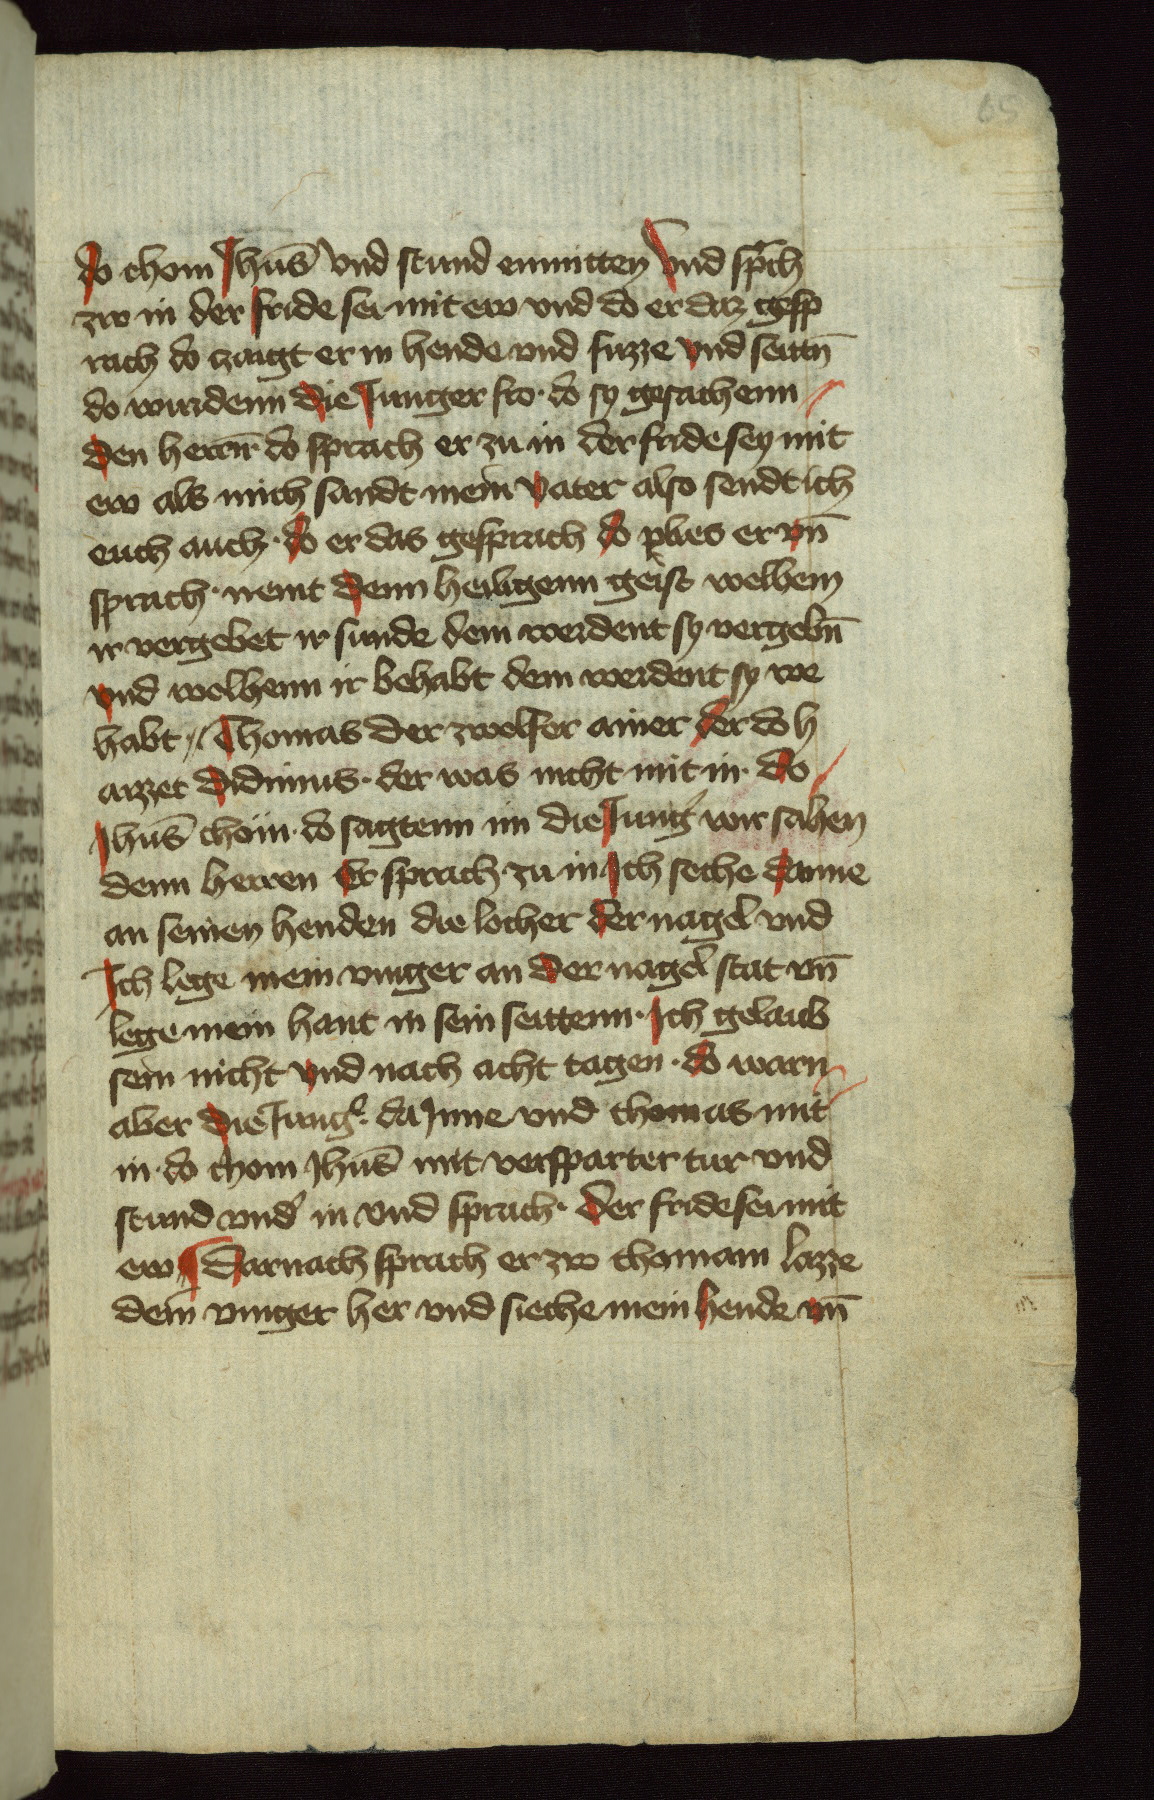 65
do chom Jhūs vnd stund enmitten vnd sprͣch
zw in der fride sei mit ew vnd do er daz gesp
rach do zaigt er in hende vnd fuzze vnd seittn̄
do wurdenn die Junger fro · do sy gesachenn
den herrn̄ do sprach er zu in der fride sey mit
ew als mich sandt mein vater also sendt ich
euch auch · do er das gesprach do plies er vn̄
sprach · nemt denn heiligenn geist welhem
ir vergebet ir sunde dem werdent sy vergebn̄
vnd welhenn ir behabt dem werdent sy we
habt · Thomas der zwelfer ainer der do h
aizzet didimus · der was nicht mit in · do
Jhūs chom · do sagtenn im die Jung̛ wir sahen
denn herren Er sprach zu in Ich seche danne
an seinen henden die locher der nagel vnd
Ich lege mein vinger an der nagel stat vn̄
lege mein hant in sein seittenn · Ich gelaub
sein nicht vnd nach acht tagen · do warn
aber die Jung̛ · da Inne vnd thomas mit
in · do chom Jhūs mit versparter tur vnd
stund vnd̛ in vnd sprach · der fride sei mit
ew ¶ Darnach sprach er zw thomam lazze
dein vinger her vnd sieche mein hende vn̄